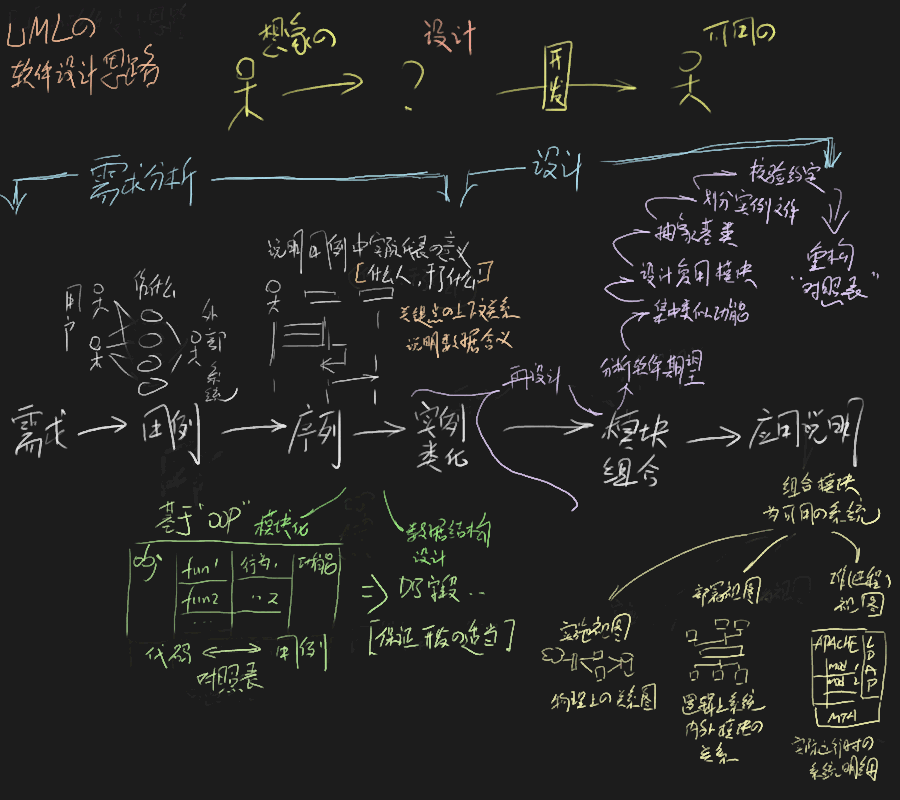 UMLの
软件设计思路
想象の
设计
可用の
?
开发
需求分析
设计
校验约定
划分实例文件
抽象基类
设计复用模块
集中类似功能
分析软件期望
重构
"对照表"
说明用例中实际依赖の意义
[什么人,干了什么]
关键点の上下文关系
说明数据含义
做什么
用户
外部系统
再设计
需求
用例
序列
实例
类化
模块
组合
应用说明
组合模块
为可用の系统
基于"OOP"模块化
数据结构
设计
obj
fun1
行为1
功能
fun2
..2
...
=> DB字段..
[保证开发の适当]
代码
用例
对照表
实施视图
物理上の关系图
部署视图
逻辑上系统
内外模块の
关系
工作(进程)
视图
APACHE
mod 1
mod 2
LDAP
MTA
实际运行时の
系统明细